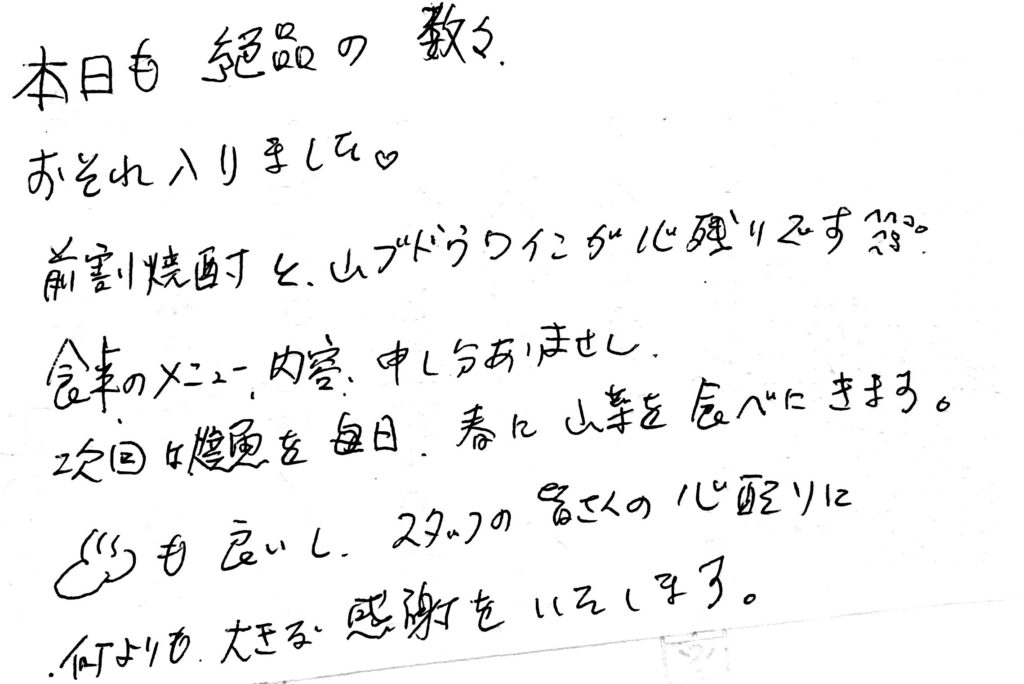 本日も 絶品の 数々.
おそれ入りました♡
前割焼酎と、山ブドウワインが心残りです
食事のメニュー、内容、申し分ありません.
次回は 魚を 毎日. 春に 山菜を 食べにきます。
♨も良いし、スタッフの皆さんの心配りに
何よりも、大きな感謝をいたします。